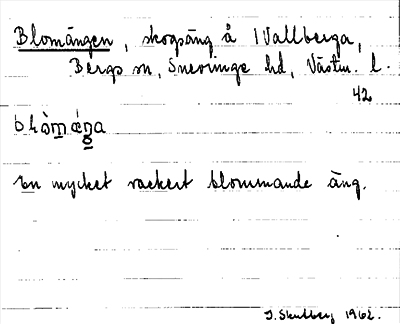 Blomängen, skogsäng å 1 Vallberga,
Bergs sn, Snevringe hd, Västm. l.
42
En mycket vackert blommande äng.
1962.